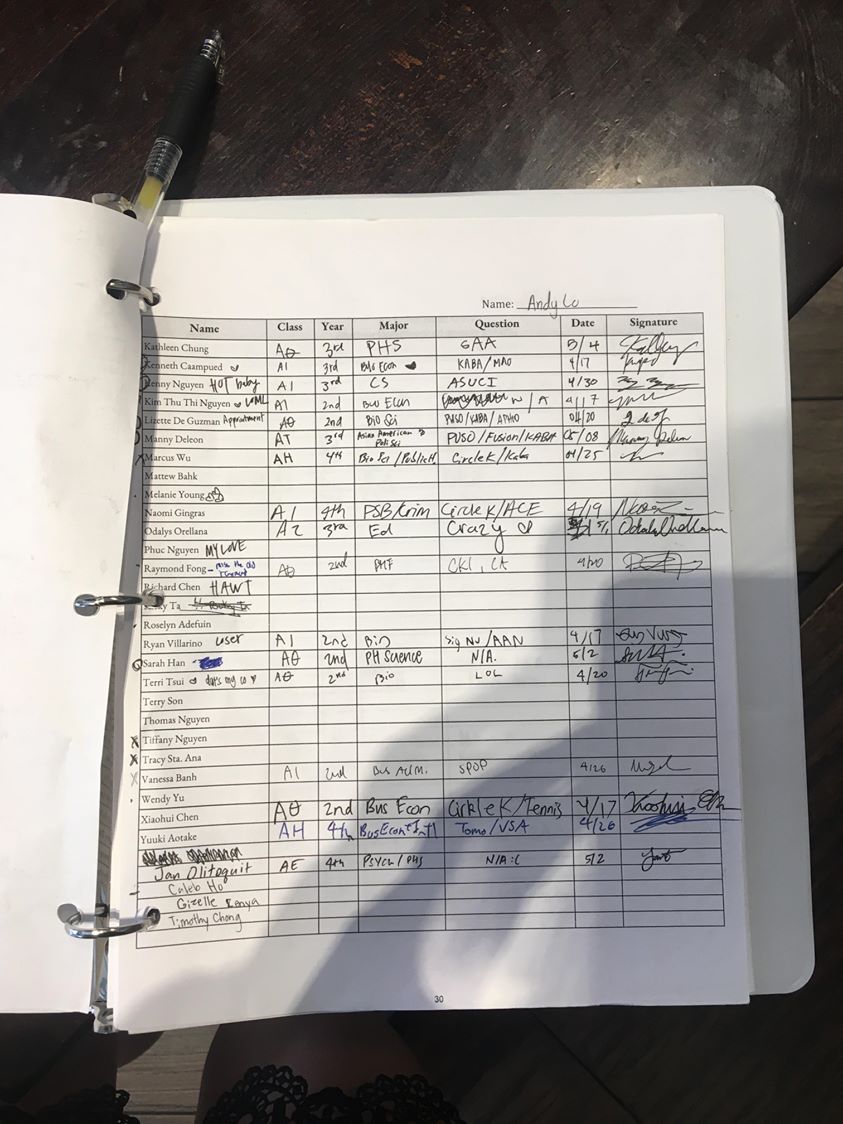 Name: Andy Lu
Name Class Year Major Question Date Signature
Kathleen Chung AΘ 3rd PHS GAA 5/4
Kenneth Caampued AI 3rd Bus Econ KABA/MAO 4/17
Kenny Nguyen HOT baby AI 3rd CS ASUCI 4/30
Kim Thu Thi Nguyen AI 2nd Bus Econ N/A 4/17
Lizette De Guzman Appointment AΘ 2nd Bio Sci PUSO/KABA/APHO 04/20
Manny Deleon AT 3rd Asian American & Poli Sci PUSO/Fusion/KABA 05/08
Marcus Wu AH 4th Bio Sci/ Circle K/Kaba 04/25
Mattew Bahk
Melanie Young
Naomi Gingras AI 4th PSB/Krim Circle K/ACE 4/19
Odalys Orellana AZ 3rd Ed Crazy
Phuc Nguyen MY LOVE
Raymond Fong - miss the old AΘ 2nd PHF CKI, LA 4/20
Richard Chen HAWT
Ta
Roselyn Adefuin
Ryan Villarino user AI 2nd Bio Sig Nu/AAN 4/17
Sarah Han - AΘ 2nd PH Science N/A. 5/2
Terri Tsui dats my co AΘ 2nd Bio LOL 4/20
Terry Son
Thomas Nguyen
X Tiffany Nguyen
X Tracy Sta. Ana
X Vanessa Banh AI 2nd Bus Adm. SPOP 4/26
Wendy Yu
Xiaohui Chen AΘ 2nd Bus Econ Cirkle K/Tennis 4/17
Yuuki Aotake AH 4th Bus Econ + Int'l Tomo/VSA 4/26
Jan Olitoquit AE 4th Psych/PHS N/A :( 5/2
Caleb Ho
Gizelle
Timothy Chong
30